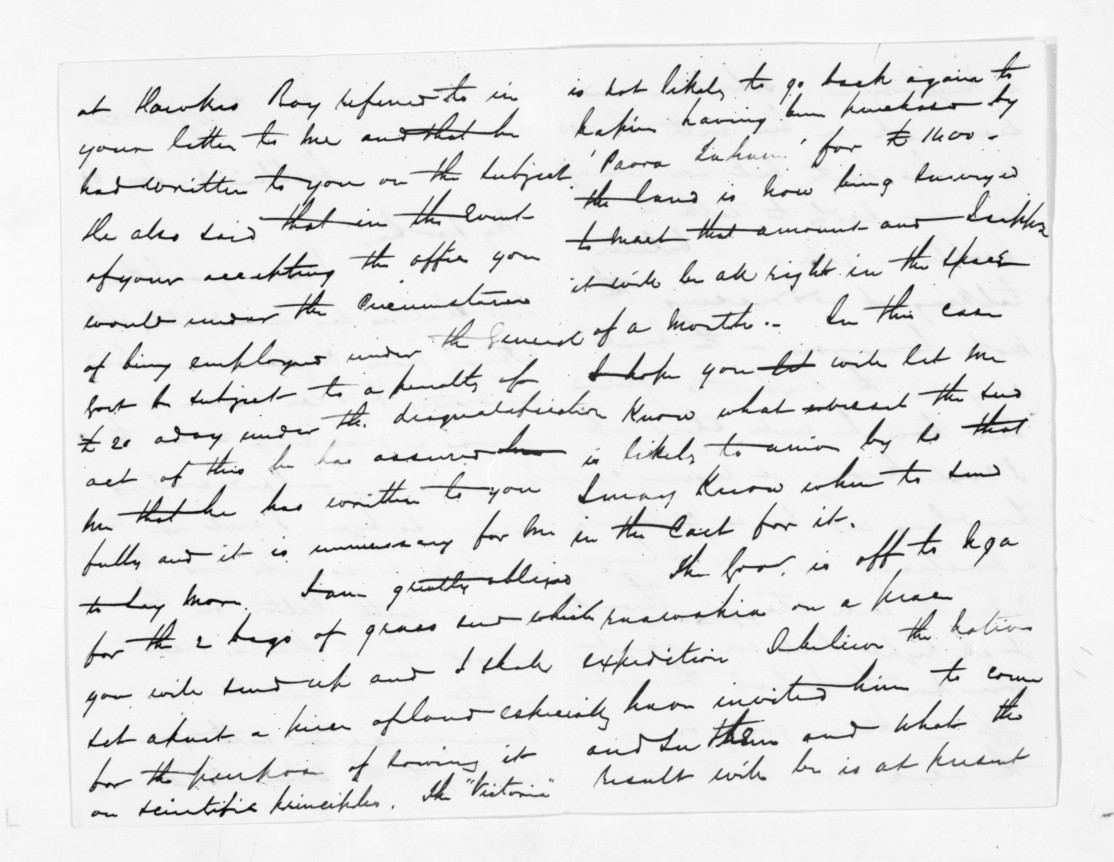 at Hawkes Bay referred to in
your letter to me and that he
had written to you on the subject.
He also said that in the event
of your accepting the office you
would under the circumstances
of being employed under the General
Govt be subject to a penalty of
£20 a day under the disqualification
act of this he has assured
me that he has written to you
fully and it is unnecessary for me
to say more. I am greatly obliged
for the 2 bags of grass seed which
you will send up and I shall
set apart a piece of land especially
for the purpose of sowing it
on scientific principles. The "Victoria"
is not likely to go back again to
Napier having been purchased by
'Paora' for £1400 -
the land is now being surveyed
to meet that amount and I suppose
it will be all right in the space
of a month. - In this case
I hope you will let me
know what vessel the seed
is likely to arrive by so that
I may know when to send
in the cart for it.
The Govr. is off to Nga
ruawahia on a peace
expedition I believe the natives
have invited him to come
and see them and what the
result will be is at present